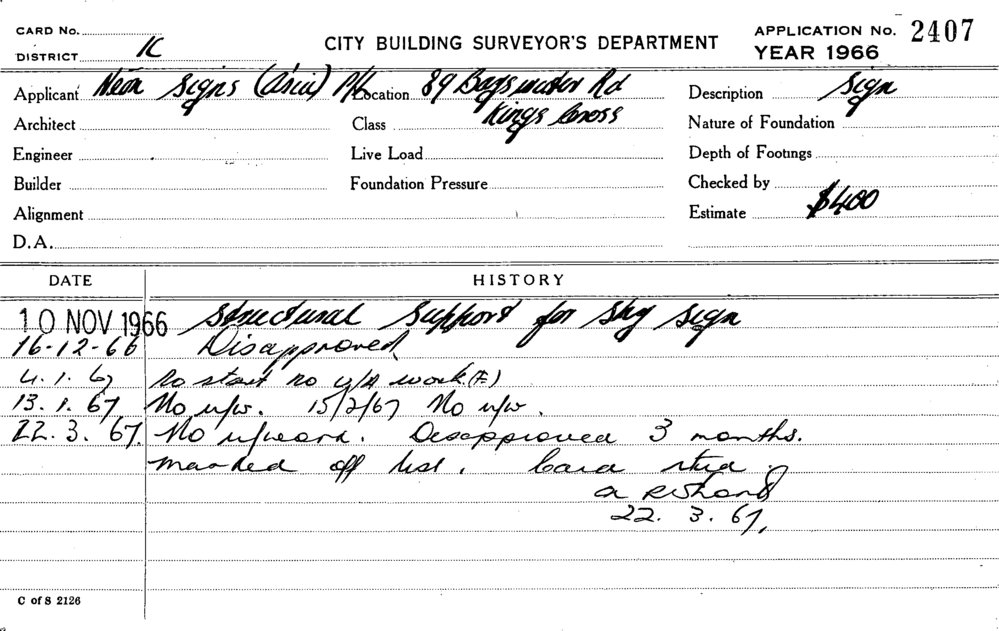 CARD No.
DISTRICT 1C
CITY BUILDING SURVEYOR'S DEPARTMENT
APPLICATION No. 2407
YEAR 1966
Applicant Neon Signs (Asia) P/L Location 89 Bayswater Rd Description Sign
Architect Class Kings Cross Nature of Foundation
Engineer Live Load Depth of Footings
Builder Foundation Pressure Checked by
Alignment Estimate $400
D.A.
DATE HISTORY
10 NOV 1966 Structural Support for Sky Sign
16-12-66 Disapproved
4.1.67 No start no u/a work (F)
13.1.67 No u/w. 15/2/67 No u/w.
22.3.67. No u/work. Disapproved 3 months.
marked off list. Card
22.3.67.
C of S 2126